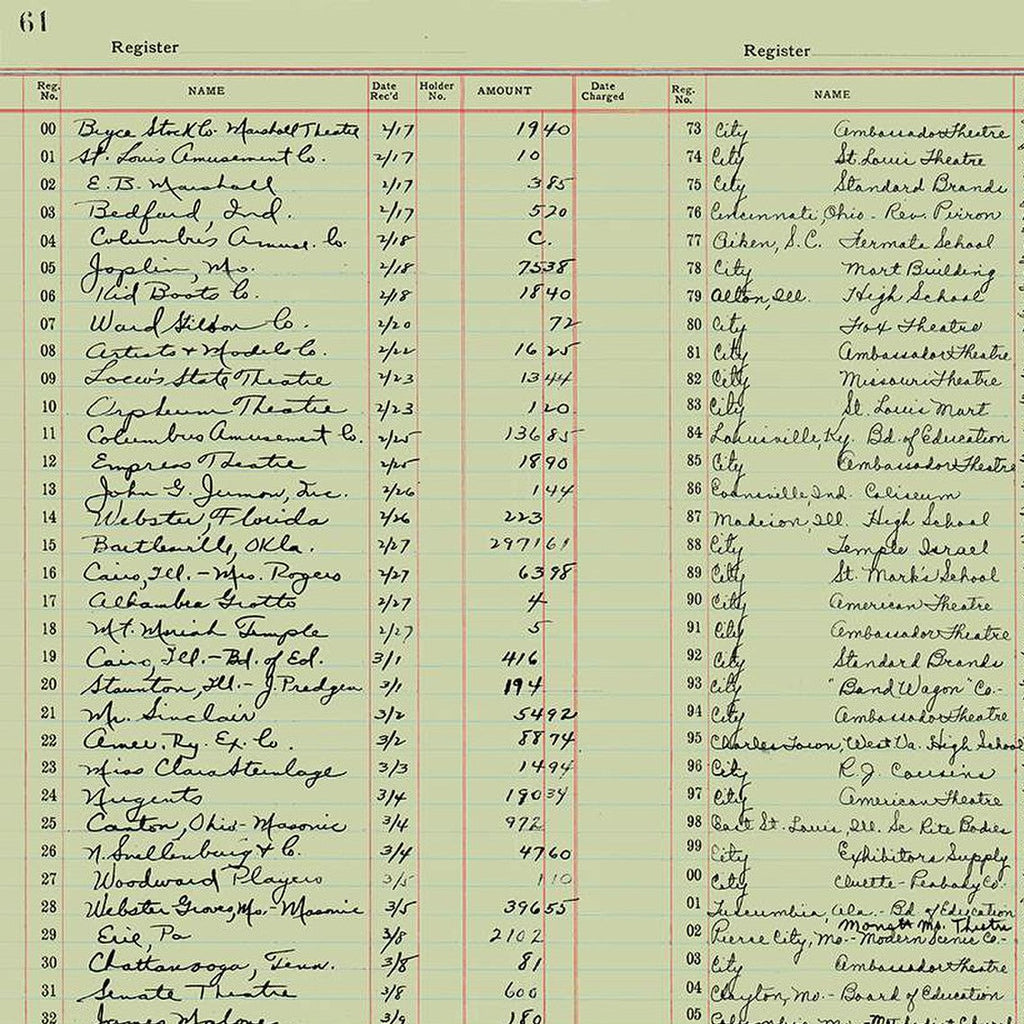 61
Register Register
Reg. No. NAME Date Rec'd Holder No. AMOUNT Date Charged Reg. No. NAME
00 Bryce Stock Co. Marshall Theatre 2/17 19 40 73 City Ambassador Theatre
01 St. Louis Amusement Co. 2/17 10 74 City St. Louis Theatre
02 E. B. Marshall 2/17 3 85 75 City Standard Brands
03 Bedford, Ind. 2/17 5 20 76 Cincinnati, Ohio - Rev. Pirron
04 Columbus Amuse. Co. 2/18 C. 77 Aiken, S.C. Fermata School
05 Joplin, Mo. 2/18 75 38 78 City Mart Building
06 Kid Boots Co. 2/18 18 40 79 Alton, Ill. High School
07 Ward Gibson Co. 2/20 72 80 City Fox Theatre
08 Artists & Models Co. 2/22 16 25 81 City Ambassador Theatre
09 Loew's State Theatre 2/23 13 44 82 City Missouri Theatre
10 Orpheum Theatre 2/23 1 20 83 City St. Louis Mart
11 Columbus Amusement Co. 2/25 136 85 84 Louisville, Ky. Bd. of Education
12 Empress Theatre 2/25 18 90 85 City Ambassador Theatre
13 John G. Jermon, Inc. 2/26 1 44 86 Evansville, Ind. Coliseum
14 Webster, Florida 2/26 223 87 Madison, Ill. High School
15 Bartlesville, Okla. 2/27 2971 61 88 City Temple Israel
16 Cairo, Ill. - Mrs. Rogers 2/27 63 98 89 City St. Mark's School
17 Alhambra Grotto 2/27 4 90 City American Theatre
18 Mt. Moriah Temple 2/27 5 91 City Ambassador Theatre
19 Cairo, Ill. - Bd. of Ed. 3/1 416 92 City Standard Brands
20 Staunton, Ill. - J. Predgen 3/1 194 93 City "Band Wagon" Co. -
21 Mr. Sinclair 3/2 54 92 94 City Ambassador Theatre
22 Amer. Ry. Ex. Co. 3/2 88 74 95 Charles Town, West Va. High School
23 Miss Clara Steinlage 3/3 14 94 96 City R. J. Cousins
24 Nugents 3/4 190 34 97 City American Theatre
25 Canton, Ohio - Masonic 3/4 972 98 East St. Louis, Ill. Sc. Rite Bodies
26 N. Snellenburg & Co. 3/4 47 60 99 City Exhibitors Supply
27 Woodward Players 3/5 1 10 00 City Cluette-Peabody Co.
28 Webster Groves, Mo. - Masonic 3/5 396 55 01 Tuscumbia, Ala. - Bd of Education
Monett Mo. Theatre
29 Erie, Pa 3/8 2102 02 Pierce City, Mo. - Modern Scenic Co. -
30 Chattanooga, Tenn. 3/8 81 03 City Ambassador Theatre
31 Senate Theatre 3/8 600 04 Clayton, Mo. - Board of Education
32 James Maloney 3/9 180 05 Columbia, Mo. - Methodist Church